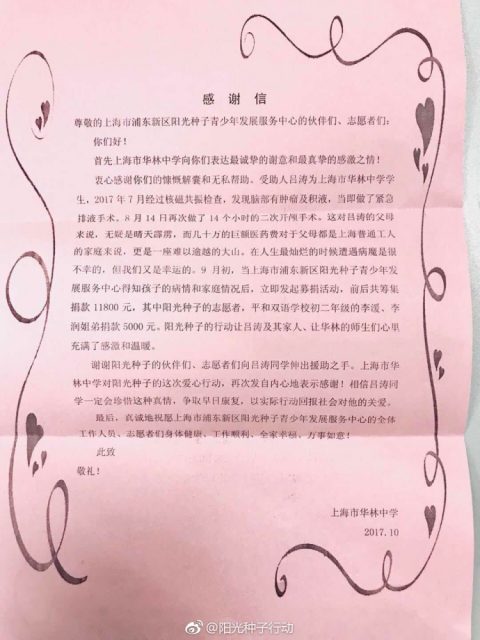 感谢信
尊敬的上海市浦东新区阳光种子青少年发展服务中心的伙伴们、志愿者们：
你们好！
首先上海市华林中学向你们表达最诚挚的谢意和最真挚的感激之情！
衷心感谢你们的慷慨解囊和无私帮助。受助人吕涛为上海市华林中学学
生，2017年7月经过核磁共振检查，发现脑部有肿瘤及积液，当即做了紧急
排液手术。8月14日再次做了14个小时的二次开颅手术。这对吕涛的父母
来说，无疑是晴天霹雳，而几十万的巨额医药费对于父母都是上海普通工人
的家庭来说，更是一座难以逾越的大山。在人生最灿烂的时候遭遇病魔是很
不幸的，但我们又是幸运的。9月初，当上海市浦东新区阳光种子青少年发
展服务中心得知孩子的病情和家庭情况后，立即发起募捐活动，前后共筹集
捐款11800元，其中阳光种子的志愿者，平和双语学校初二年级的李湲、李
润姐弟捐款5000元。阳光种子的行动让吕涛及其家人、让华林的师生们心里
充满了感激和温暖。
谢谢阳光种子的伙伴们、志愿者们向吕涛同学伸出援助之手。上海市华
林中学对阳光种子的这次爱心行动，再次发自内心地表示感谢！相信吕涛同
学一定会珍惜这种真情，争取早日康复，以实际行动回报社会对他的关爱。
最后，真诚地祝愿上海市浦东新区阳光种子青少年发展服务中心的全体
工作人员、志愿者们身体健康、工作顺利、全家幸福、万事如意！
此致
敬礼！
上海市华林中学
2017.10
@阳光种子行动